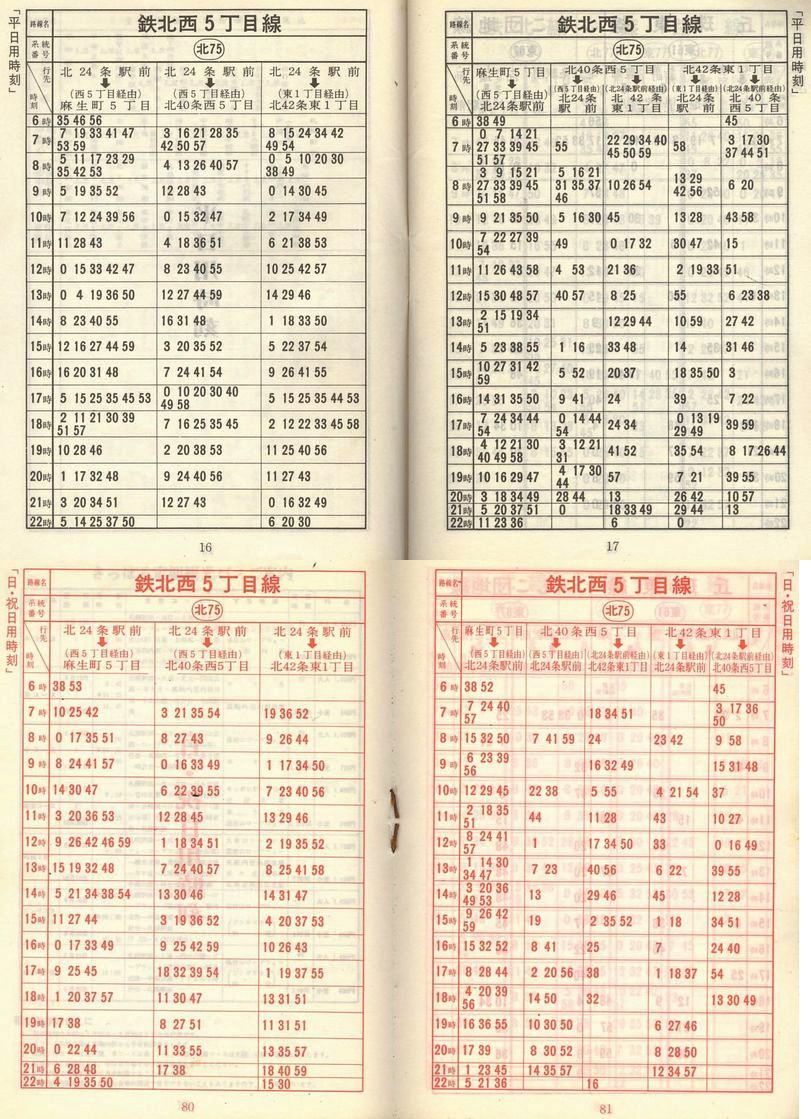 「平日用時刻」
路線名 鉄北西5丁目線
系統番号 北75
行先 時刻
北24条駅前 ↓ (西5丁目経由) 麻生町5丁目
北24条駅前 ↓ (西5丁目経由) 北40条西5丁目
北24条駅前 ↓ (東1丁目経由) 北42条東1丁目
6時 35 46 56
7時 7 19 33 41 47 53 59 | 3 16 21 28 35 42 50 57 | 8 15 24 34 42 49 54
8時 5 11 17 23 29 35 42 53 | 4 13 26 40 57 | 0 5 10 20 30 38 49
9時 5 19 35 52 | 12 28 43 | 0 14 30 45
10時 7 12 24 39 56 | 0 15 32 47 | 2 17 34 49
11時 11 28 43 | 4 18 36 51 | 6 21 38 53
12時 0 15 33 42 47 | 8 23 40 55 | 10 25 42 57
13時 0 4 19 36 50 | 12 27 44 59 | 14 29 46
14時 8 23 40 55 | 16 31 48 | 1 18 33 50
15時 12 16 27 44 59 | 3 20 35 52 | 5 22 37 54
16時 16 20 31 48 | 7 24 41 54 | 9 26 41 55
17時 5 15 25 35 45 53 | 0 10 20 30 40 49 58 | 5 15 25 35 44 53
18時 2 11 21 30 39 51 57 | 7 16 25 35 45 | 2 12 22 33 45 58
19時 10 28 46 | 2 20 38 53 | 11 25 40 56
20時 1 17 32 48 | 9 24 40 56 | 11 27 43
21時 3 20 34 51 | 12 27 43 | 0 16 32 49
22時 5 14 25 37 50 | | 6 20 30
16
「平日用時刻」
路線名 鉄北西5丁目線
系統番号 北75
行先 時刻
麻生町5丁目 ↓ (西5丁目経由) 北24条駅前
北40条西5丁目 ↓ (西5丁目経由) 北24条駅前 ↓ (北24条駅前経由) 北42条東1丁目
北42条東1丁目 ↓ (東1丁目経由) 北24条駅前 ↓ (北24条駅前経由) 北40条西5丁目
6時 38 49 | | | | 45
7時 0 7 14 21 27 33 39 45 51 57 | 55 | 22 29 34 40 45 50 59 | 58 | 3 17 30 37 44 51
8時 3 9 15 21 27 33 39 45 51 58 | 5 16 21 31 35 37 46 | 10 26 54 | 13 29 42 56 | 6 20
9時 9 21 35 50 | 5 16 30 | 45 | 13 28 | 43 58
10時 7 22 27 39 54 | 49 | 0 17 32 | 30 47 | 15
11時 11 26 43 58 | 4 53 | 21 36 | 2 19 33 | 51
12時 15 30 48 57 | 40 57 | 8 25 | 55 | 6 23 38
13時 2 15 19 34 51 | | 12 29 44 | 10 59 | 27 42
14時 5 23 38 55 | 1 16 | 33 48 | 14 | 31 46
15時 10 27 31 42 59 | 5 52 | 20 37 | 18 35 50 | 3
16時 14 31 35 50 | 9 41 | 24 | 39 | 7 22
17時 7 24 34 44 54 | 0 14 44 54 | 24 34 | 0 13 19 29 49 | 39 59
18時 4 12 21 30 40 49 58 | 3 12 21 31 | 41 52 | 35 54 | 8 17 26 44
19時 10 16 29 47 | 4 17 30 44 | 57 | 7 21 | 39 55
20時 3 18 34 49 | 28 44 | 13 | 26 42 | 10 57
21時 5 20 37 51 | 0 | 18 33 49 | 29 44 | 13
22時 11 23 36 | | 6 | 0
17
「日・祝日用時刻」
路線名 鉄北西5丁目線
系統番号 北75
行先 時刻
北24条駅前 ↓ (西5丁目経由) 麻生町5丁目
北24条駅前 ↓ (西5丁目経由) 北40条西5丁目
北24条駅前 ↓ (東1丁目経由) 北42条東1丁目
6時 38 53
7時 10 25 42 | 3 21 35 54 | 19 36 52
8時 0 17 35 51 | 8 27 43 | 9 26 44
9時 8 24 41 57 | 0 16 33 49 | 1 17 34 50
10時 14 30 47 | 6 22 39 55 | 7 23 40 56
11時 3 20 36 53 | 12 28 45 | 13 29 46
12時 9 26 42 46 59 | 1 18 34 51 | 2 19 35 52
13時 15 19 32 48 | 7 24 40 57 | 8 25 41 58
14時 5 21 34 38 54 | 13 30 46 | 14 31 47
15時 11 27 44 | 3 19 36 52 | 4 20 37 53
16時 0 17 33 49 | 9 25 42 59 | 10 26 43
17時 9 25 45 | 18 32 39 54 | 1 19 37 55
18時 1 20 37 57 | 11 30 47 | 13 31 51
19時 17 38 | 8 27 51 | 11 31 51
20時 0 22 44 | 11 33 55 | 13 35 57
21時 6 28 48 | 17 38 | 18 40 59
22時 4 19 35 50 | | 15 30
80
「日・祝日用時刻」
路線名 鉄北西5丁目線
系統番号 北75
行先 時刻
麻生町5丁目 ↓ (西5丁目経由) 北24条駅前
北40条西5丁目 ↓ (西5丁目経由) 北24条駅前 ↓ (北24条駅前経由) 北42条東1丁目
北42条東1丁目 ↓ (東1丁目経由) 北24条駅前 ↓ (北24条駅前経由) 北40条西5丁目
6時 38 52 | | | | 45
7時 7 24 40 57 | | 18 34 51 | | 3 17 36 50
8時 15 32 50 | 7 41 59 | 24 | 23 42 | 9 58
9時 6 23 39 56 | | 16 32 49 | | 15 31 48
10時 12 29 45 | 22 38 | 5 55 | 4 21 54 | 37
11時 2 18 35 51 | 44 | 11 28 | 43 | 10 27
12時 8 24 41 57 | 1 | 17 34 50 | 33 | 0 16 49
13時 1 14 30 34 47 | 7 23 | 40 56 | 6 22 | 39 55
14時 3 20 36 49 53 | 13 | 29 46 | 45 | 12 28
15時 9 26 42 59 | 19 | 2 35 52 | 1 18 | 34 51
16時 15 32 52 | 8 41 | 25 | 7 | 24 40
17時 8 28 44 | 2 20 56 | 38 | 1 18 37 | 54
18時 4 20 39 56 | 14 50 | 32 | | 13 30 49
19時 16 36 55 | 10 30 50 | | 6 27 46
20時 17 39 | 8 30 52 | | 8 28 50
21時 1 23 45 | 14 35 57 | | 12 34 57
22時 5 21 36 | | 16
81